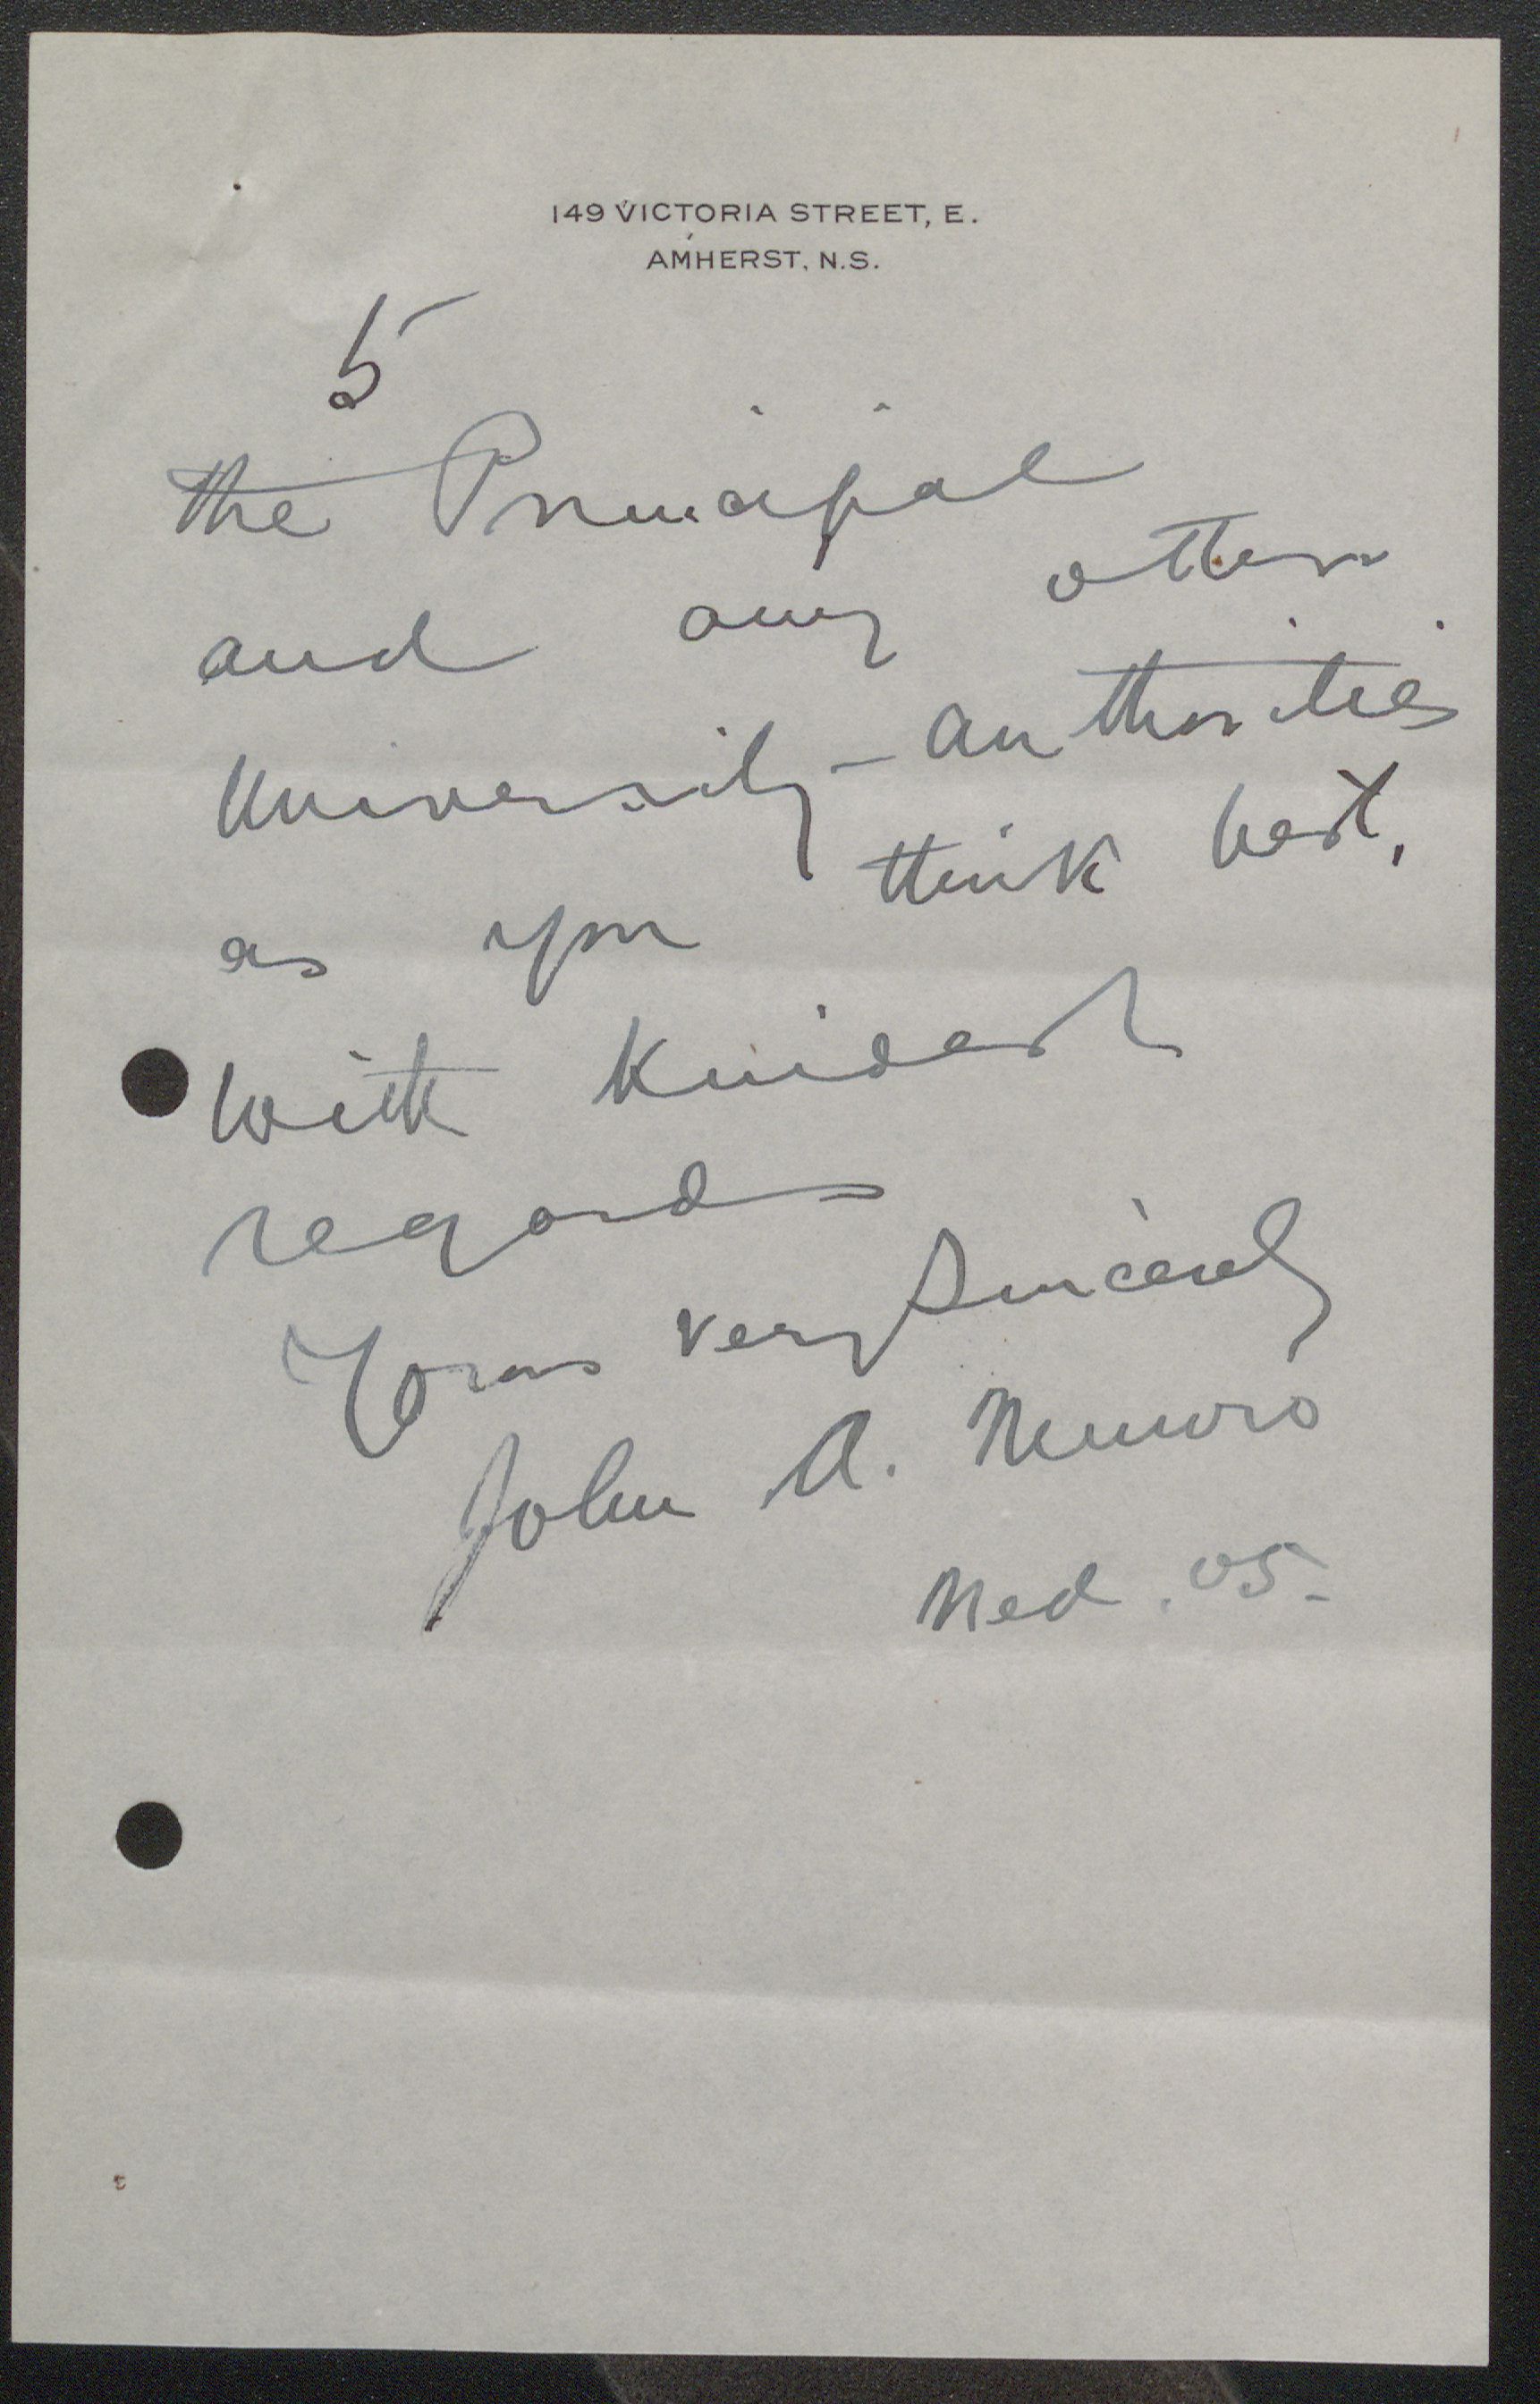 149 VICTORIA STREET, E.
AMHERST, N.S.
5
the Principal
and any other
University - authorities
as you think best,
with kindest
regards
Yours very sincerely
John A. Munro
Med. 05.